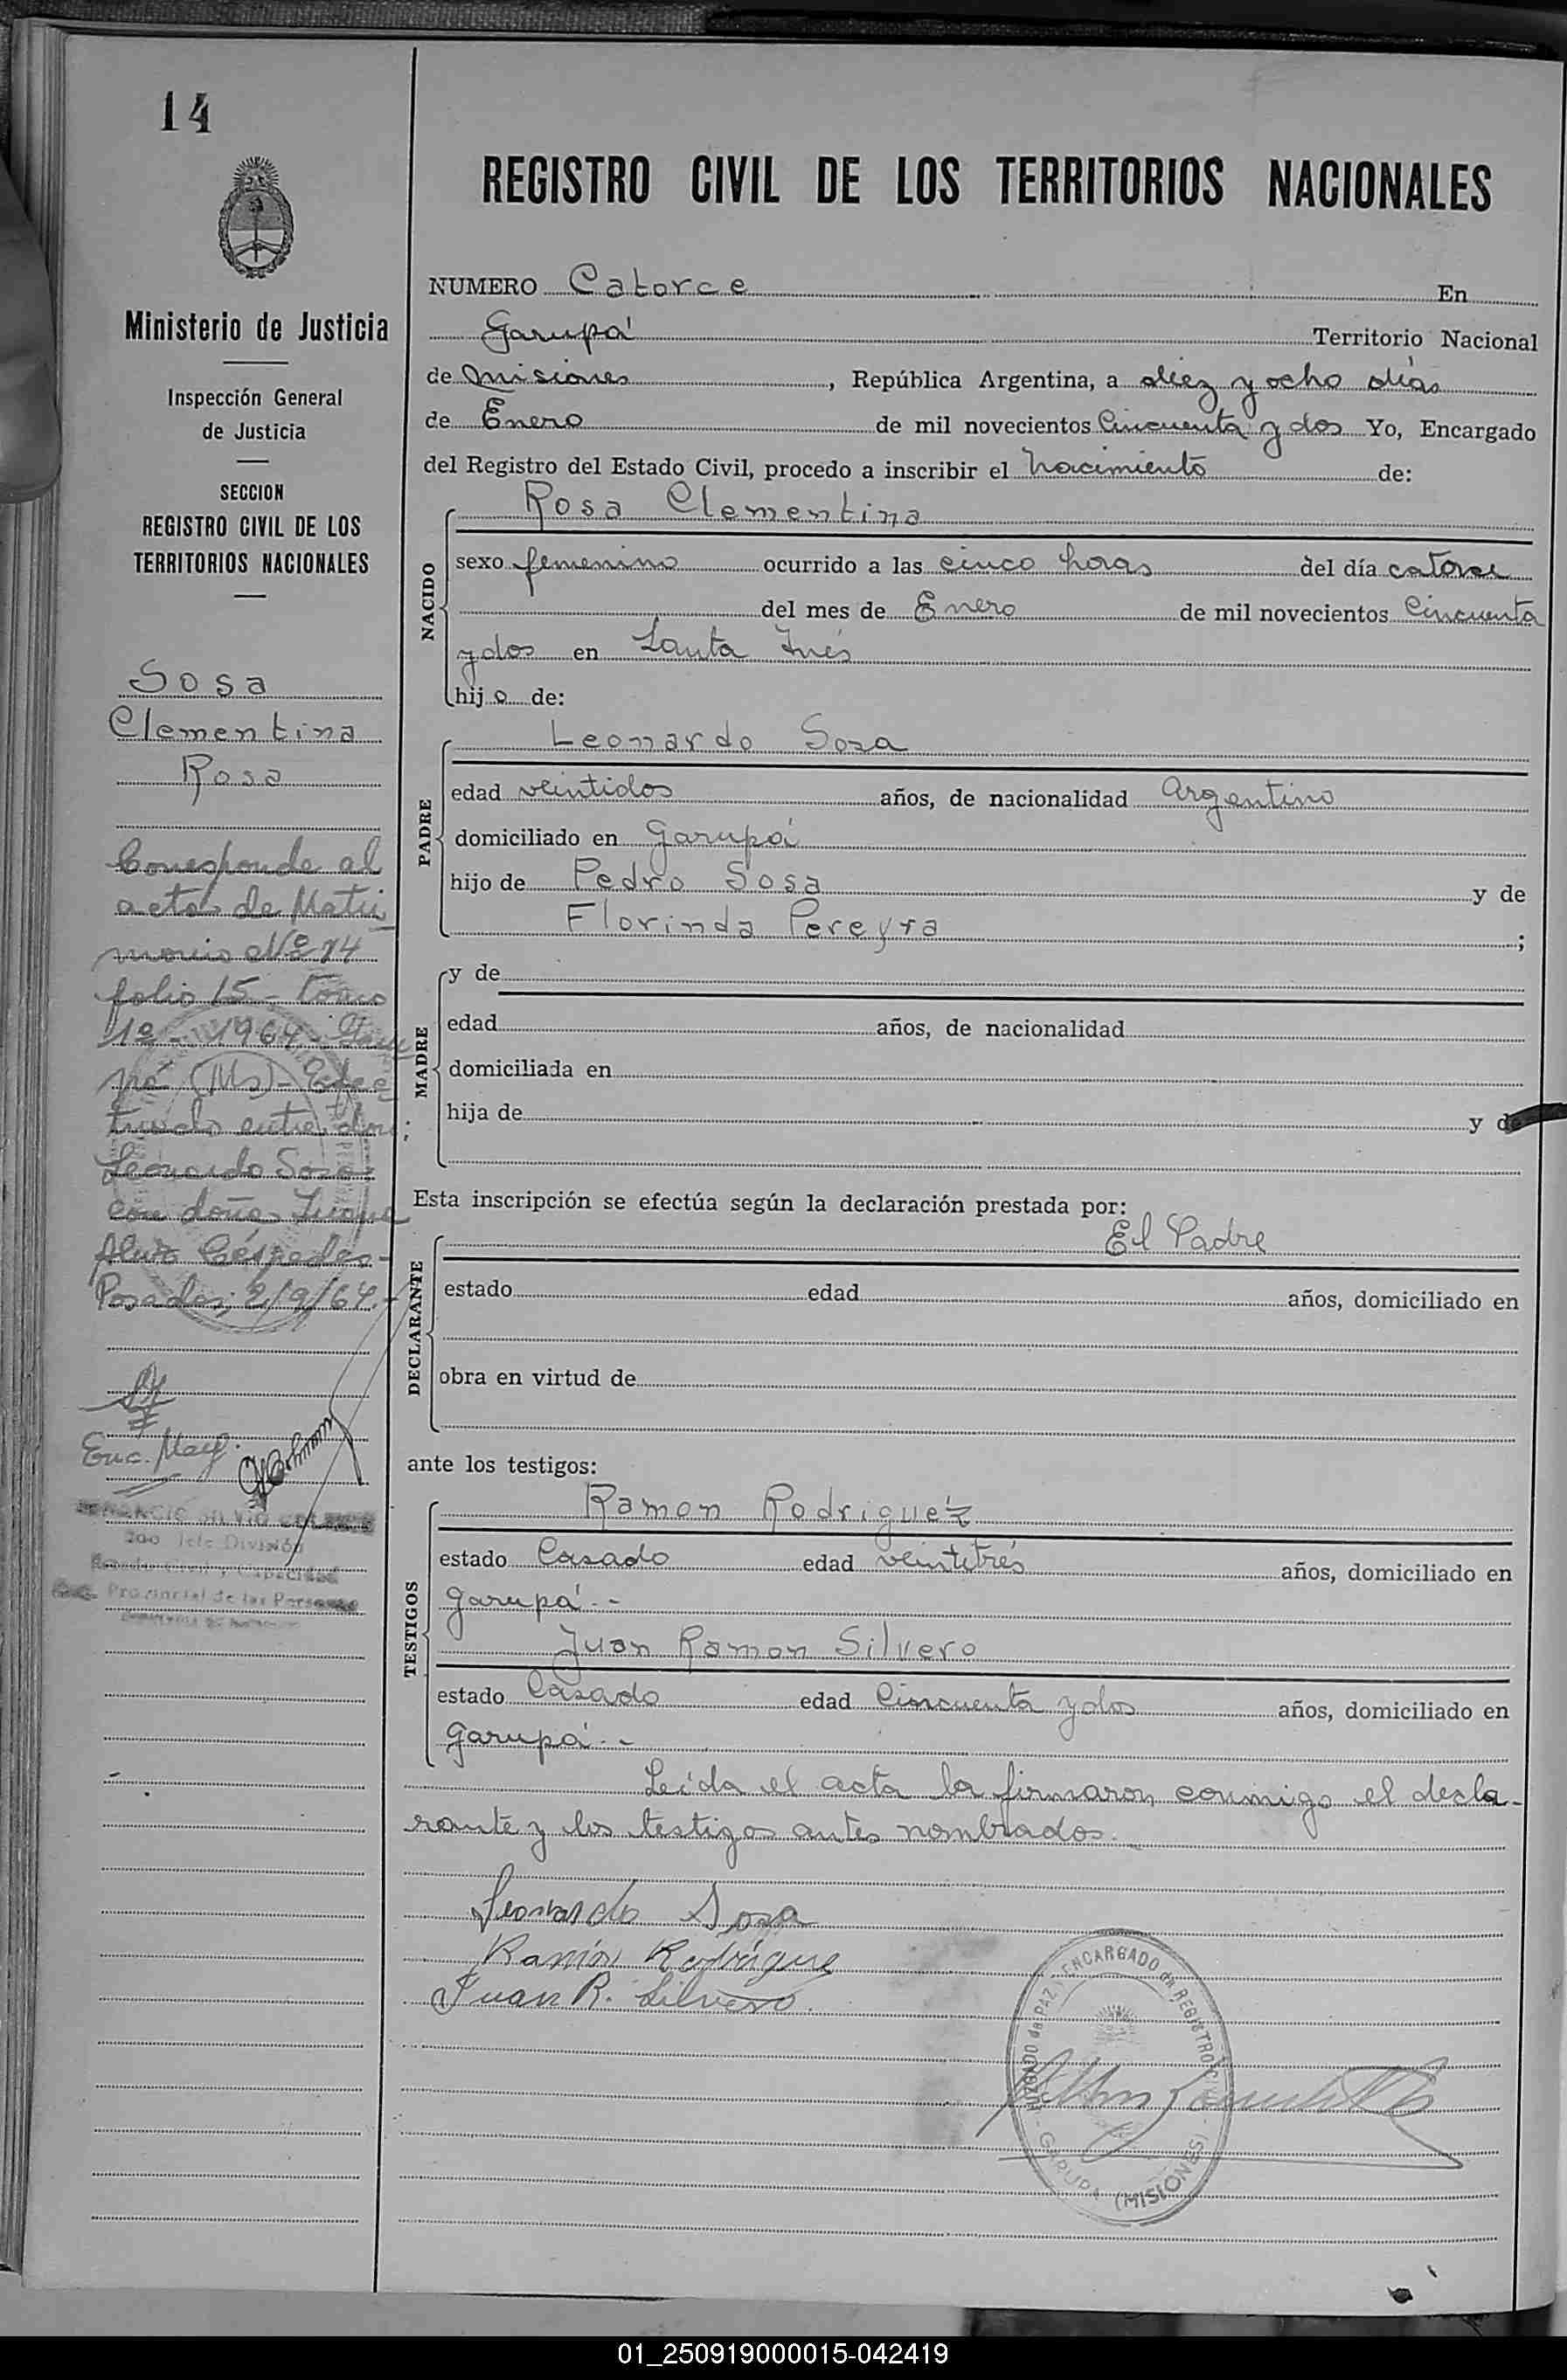 14
Ministerio de Justicia
Inspección General
de Justicia
SECCION
REGISTRO CIVIL DE LOS
TERRITORIOS NACIONALES
Sosa
Clementina
Rosa
Corresponde al
acta de Matri
monio Nº 14
folio 15 - Tomo
1º - 1964 - Garu
pá (Ms) - Efec
tuado entre don
Leonardo Sosa
con doña
Céspedes -
Posadas, 2/9/64.-
Enc. May.
2do Jefe División
Estado Civil y Capacidad
Provincial de las Personas
REGISTRO CIVIL DE LOS TERRITORIOS NACIONALES
NUMERO Catorce En
Garupá Territorio Nacional
de Misiones, República Argentina, a diez y ocho días
de Enero de mil novecientos Cincuenta y dos Yo, Encargado
del Registro del Estado Civil, procedo a inscribir el nacimiento de:
NACIDO
Rosa Clementina
sexo femenino ocurrido a las cinco horas del día catorce
del mes de Enero de mil novecientos Cincuenta
y dos en Santa Inés
hijo de:
PADRE
Leonardo Sosa
edad veintidos años, de nacionalidad Argentino
domiciliado en Garupá
hijo de Pedro Sosa y de
Florinda Pereyra;
MADRE
y de
edad años, de nacionalidad
domiciliada en
hija de y de
;
Esta inscripción se efectúa según la declaración prestada por:
DECLARANTE
El Padre
estado edad años, domiciliado en
obra en virtud de
ante los testigos:
TESTIGOS
Ramon Rodriguez
estado Casado edad veintitrés años, domiciliado en
Garupá.-
Juan Ramon Silvero
estado Casado edad Cincuenta y dos años, domiciliado en
Garupá.-
Leída el acta la firmaron conmigo el decla-
rante y los testigos antes nombrados.
Leonardo Sosa
Ramón Rodrigue
Juan R. Silvero.
JUZGADO de PAZ y ENCARGADO de REGISTRO C.
GARUPA (MISIONES)
01_250919000015-042419